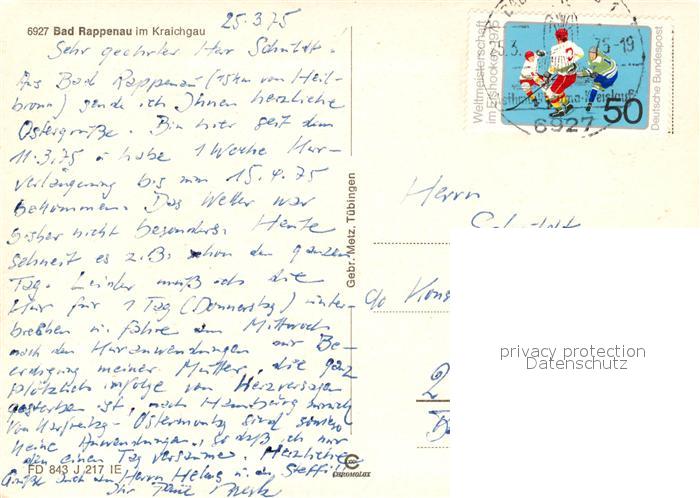 25.3.75
6927 Bad Rappenau im Kraichgau
Sehr geehrter Herr Schmidt!
Aus Bad Rappenau (15km von Heil-
bronn) sende ich Ihnen herzliche
Ostergrüße. Bin hier seit dem
11.3.75 u habe 1 Woche Kur-
verlängerung bis zum 15.4.75
bekommen. Das Wetter war
bisher nicht besonders. Heute
schneit es z.B. schon den ganzen
Tag. Leider muß ich die
Kur für 1 Tag (Donnerstag) unter-
brechen u. fahre am Mittwoch
nach den Kuranwendungen zur Be-
erdigung meiner Mutter, die ganz
plötzlich infolge von Herzversagen
gestorben ist, nach Hamburg
Von Karfreitag - Ostermontag sind sowieso
keine Anwendungen, so daß ich nur
den einen Tag versäume. Herzliche
Grüße auch an Herrn Helms u. an Steffi!
Ihr
FD 843 J 217 IE
CHROMOLUX
Gebr. Metz, Tübingen
Weltmeisterschaft
im Eishockey 1975
Deutsche Bundespost
50
25.3.75-19
6927
Herrn
Schmidt
c/o
privacy protection
Datenschutz